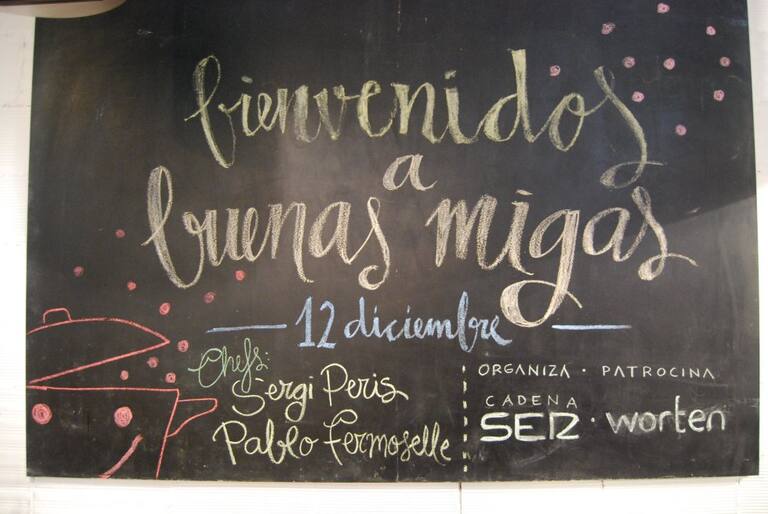 bienvenidos
a
buenas migas
12 diciembre
Chefs:
Sergi Peris
Pablo Fermoselle
ORGANIZA · PATROCINA
CADENA
SER · worten